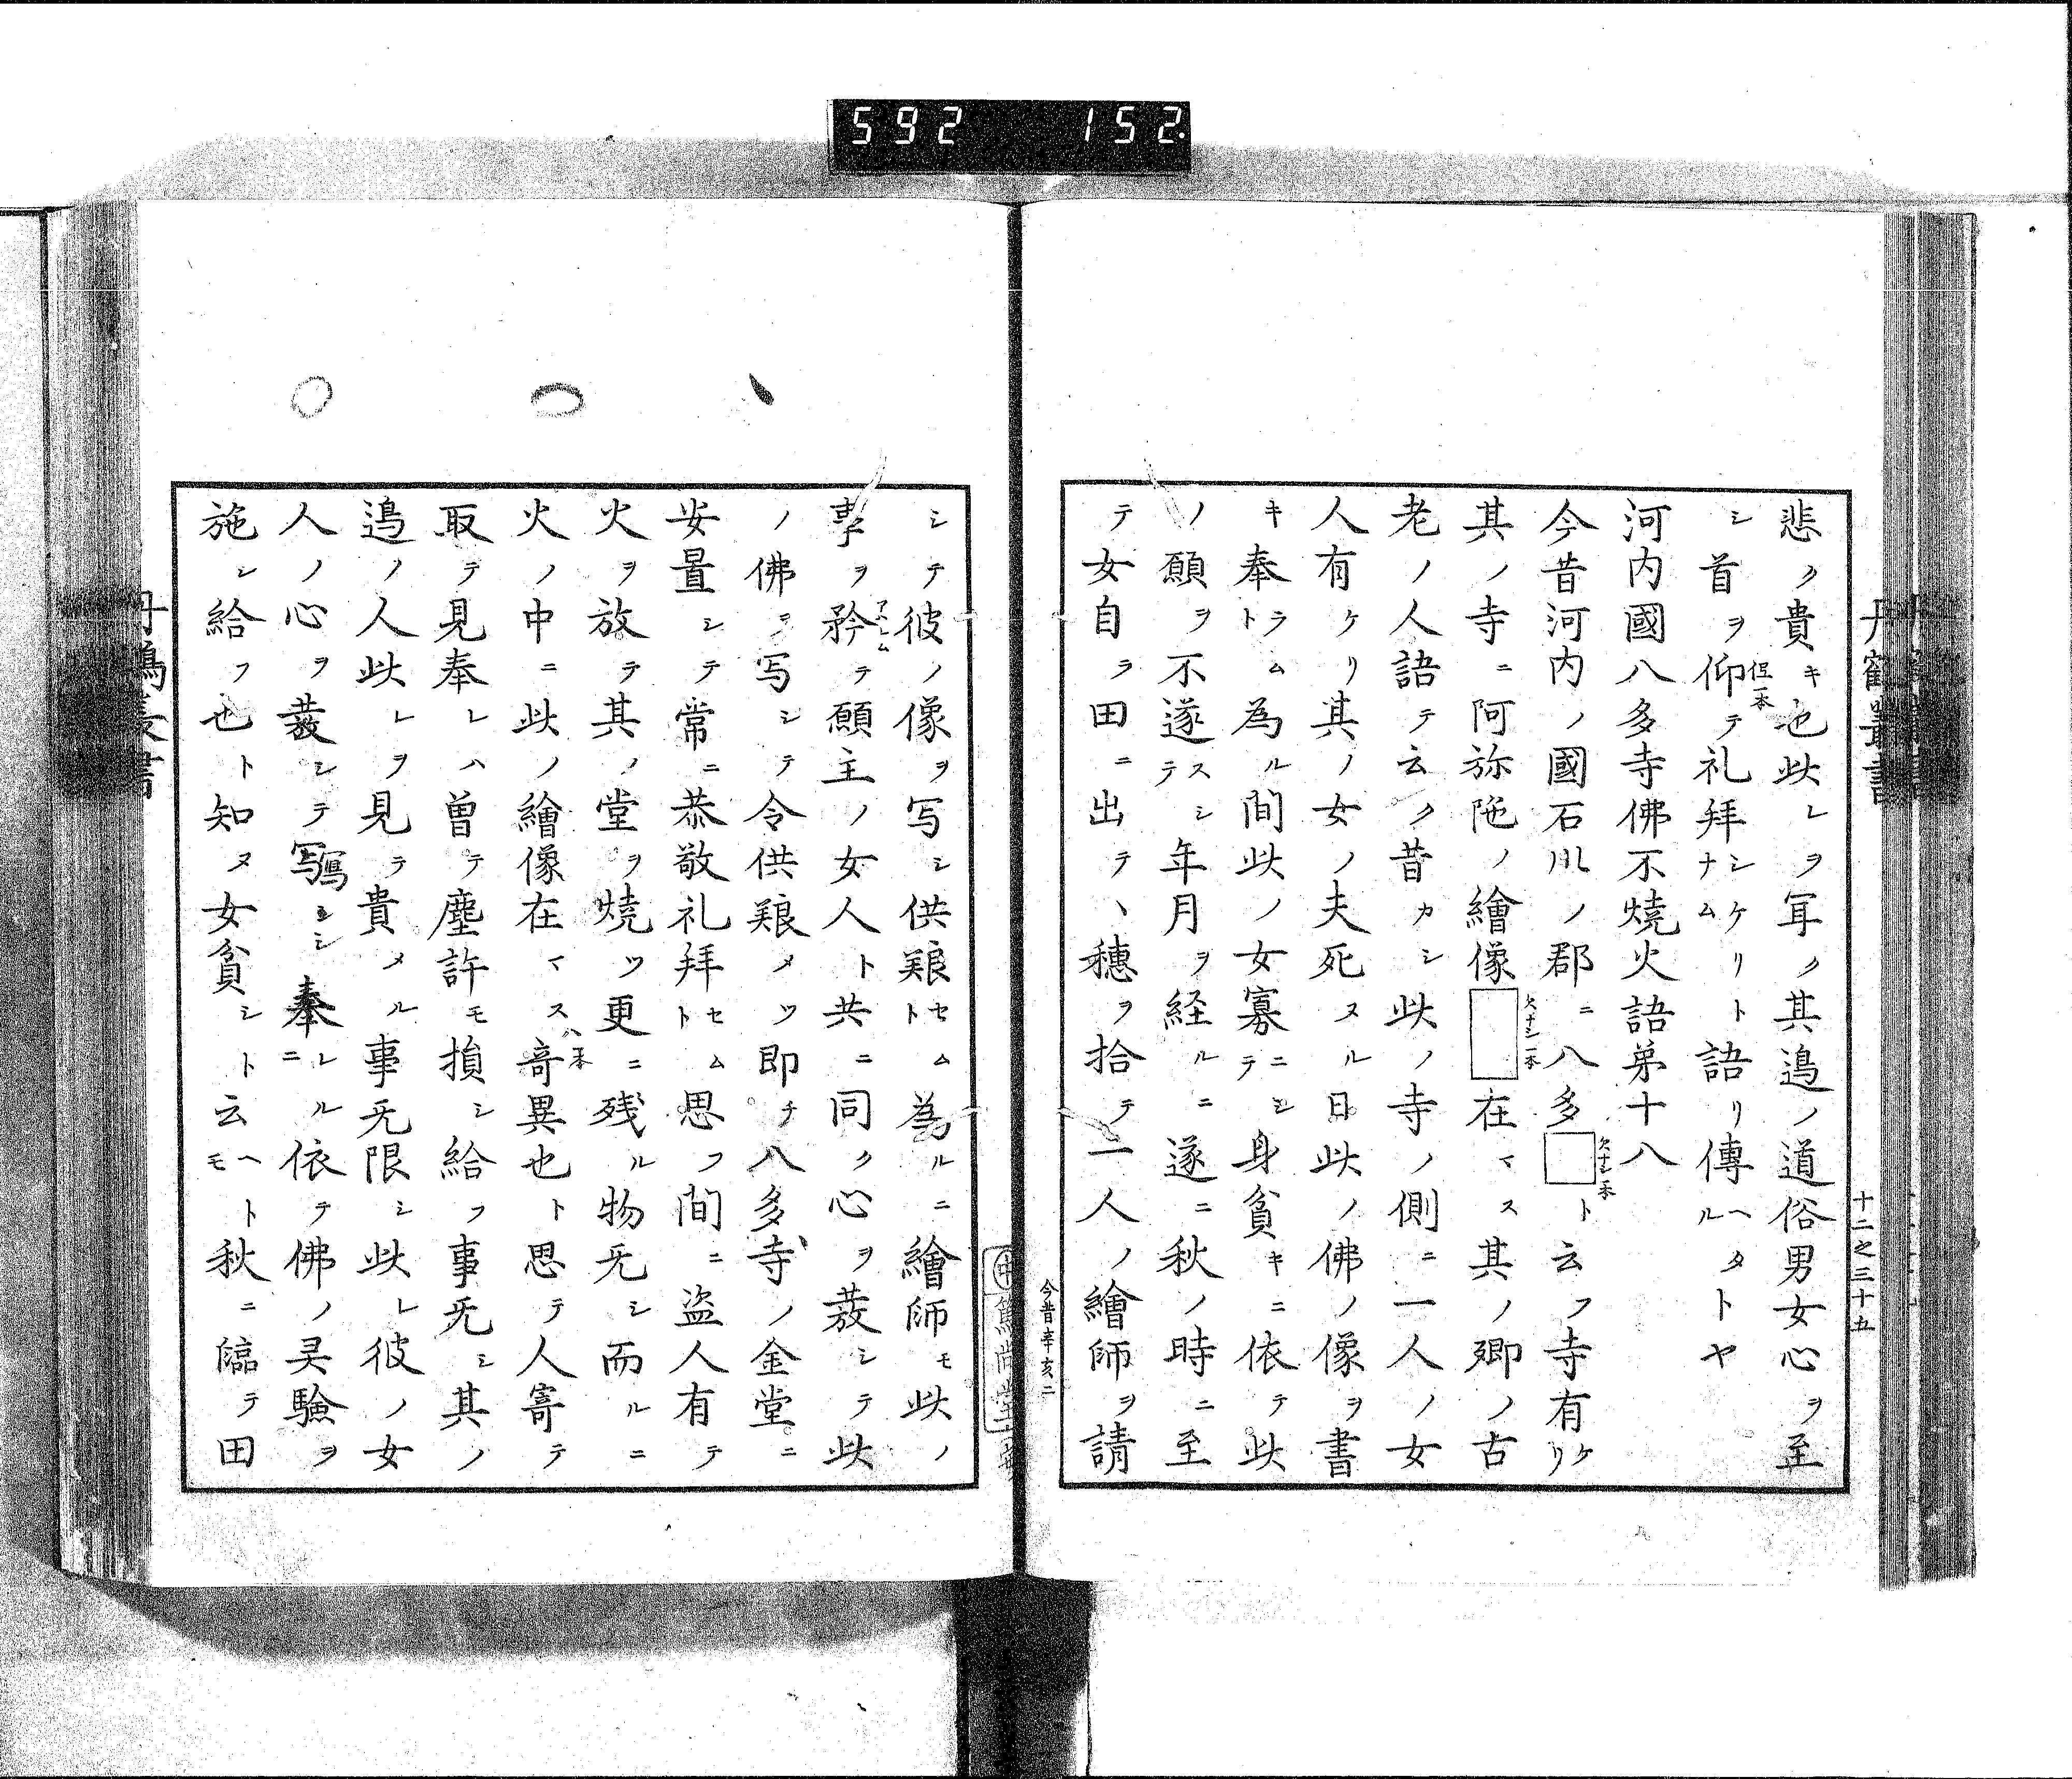 592 152
丹鶴叢書
十二之三十五
悲ク貴キ也此レヲ耳ク其邉ノ道俗男女心ヲ至
シ首ヲ仰テ礼拜シケリトナム語リ傳ヘタルトヤ
伹一本
河内國八多寺佛不燒火語弟十八
今昔河内ノ國石川ノ郡ニ八多□ト云フ寺有ケリ
欠ナシ一本
其ノ寺ニ阿弥陁ノ繪像□在マス其ノ郷ノ古
欠ナシ一本
老ノ人語テ云ク昔カシ此ノ寺ノ側ニ一人ノ女
人有ケリ其ノ女ノ夫死ヌル日此ノ佛ノ像ヲ書
キ奉ラムト為ル間此ノ女寡ニシテ身貧キニ依テ此
ノ願ヲ不遂スシテ年月ヲ経ルニ遂ニ秋ノ時ニ至
テ女自ラ田ニ出テヽ穗ヲ拾テ一人ノ繪師ヲ請
今昔辛亥二
シテ彼ノ像ヲ写シ供羪セムト為ルニ繪師モ此ノ
事ヲ矜テ願主ノ女人ト共ニ同ク心ヲ蕟シテ此
ノ佛ヲ写シテ令供羪メツ即チ八多寺ノ金堂ニ
安置シテ常ニ恭敬礼拜セムト思フ間ニ盗人有テ
火ヲ放テ其ノ堂ヲ燒ツ更ニ残ル物旡シ而ルニ
火ノ中ニ此ノ繪像在マス竒異也ト思テ人寄テ
ハ一本
取テ見奉レハ曽テ塵許モ損シ給フ事旡シ其ノ
邉ノ人此レヲ見テ貴メル事旡限シ此レ彼ノ女
人ノ心ヲ蕟シテ写シ奉レルニ依テ佛ノ灵驗ヲ
寫
施シ給フ也ト知ヌ女貧シト云ヘトモ秋ニ臨テ田
丹鶴叢書